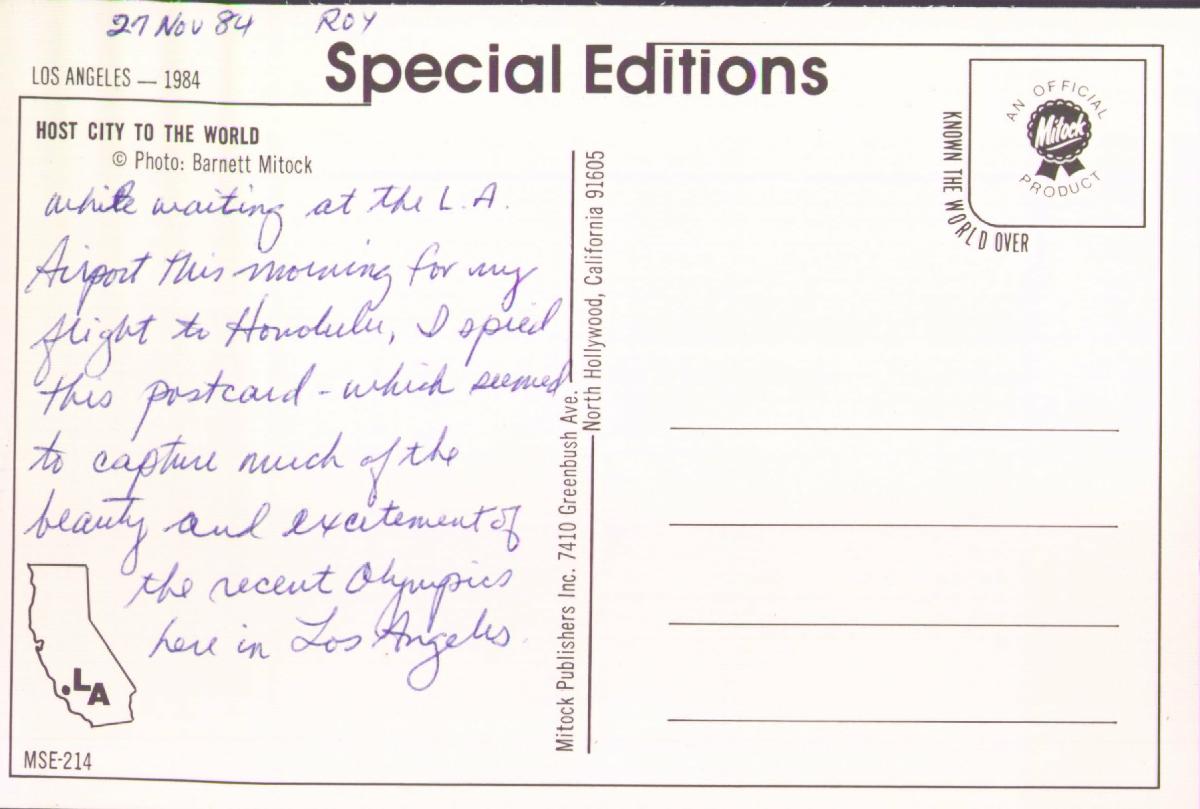 27 Nov 84 ROY
Special Editions
LOS ANGELES — 1984
HOST CITY TO THE WORLD
© Photo: Barnett Mitock
while waiting at the L.A.
Airport this morning for my
flight to Honolulu, I spied
this postcard - which seemed
to capture much of the
beauty and excitement of
the recent Olympics
here in Los Angeles.
.LA
MSE-214
Mitock Publishers Inc. 7410 Greenbush Ave.
North Hollywood, California 91605
AN OFFICIAL
Mitock
PRODUCT
KNOWN THE WORLD OVER